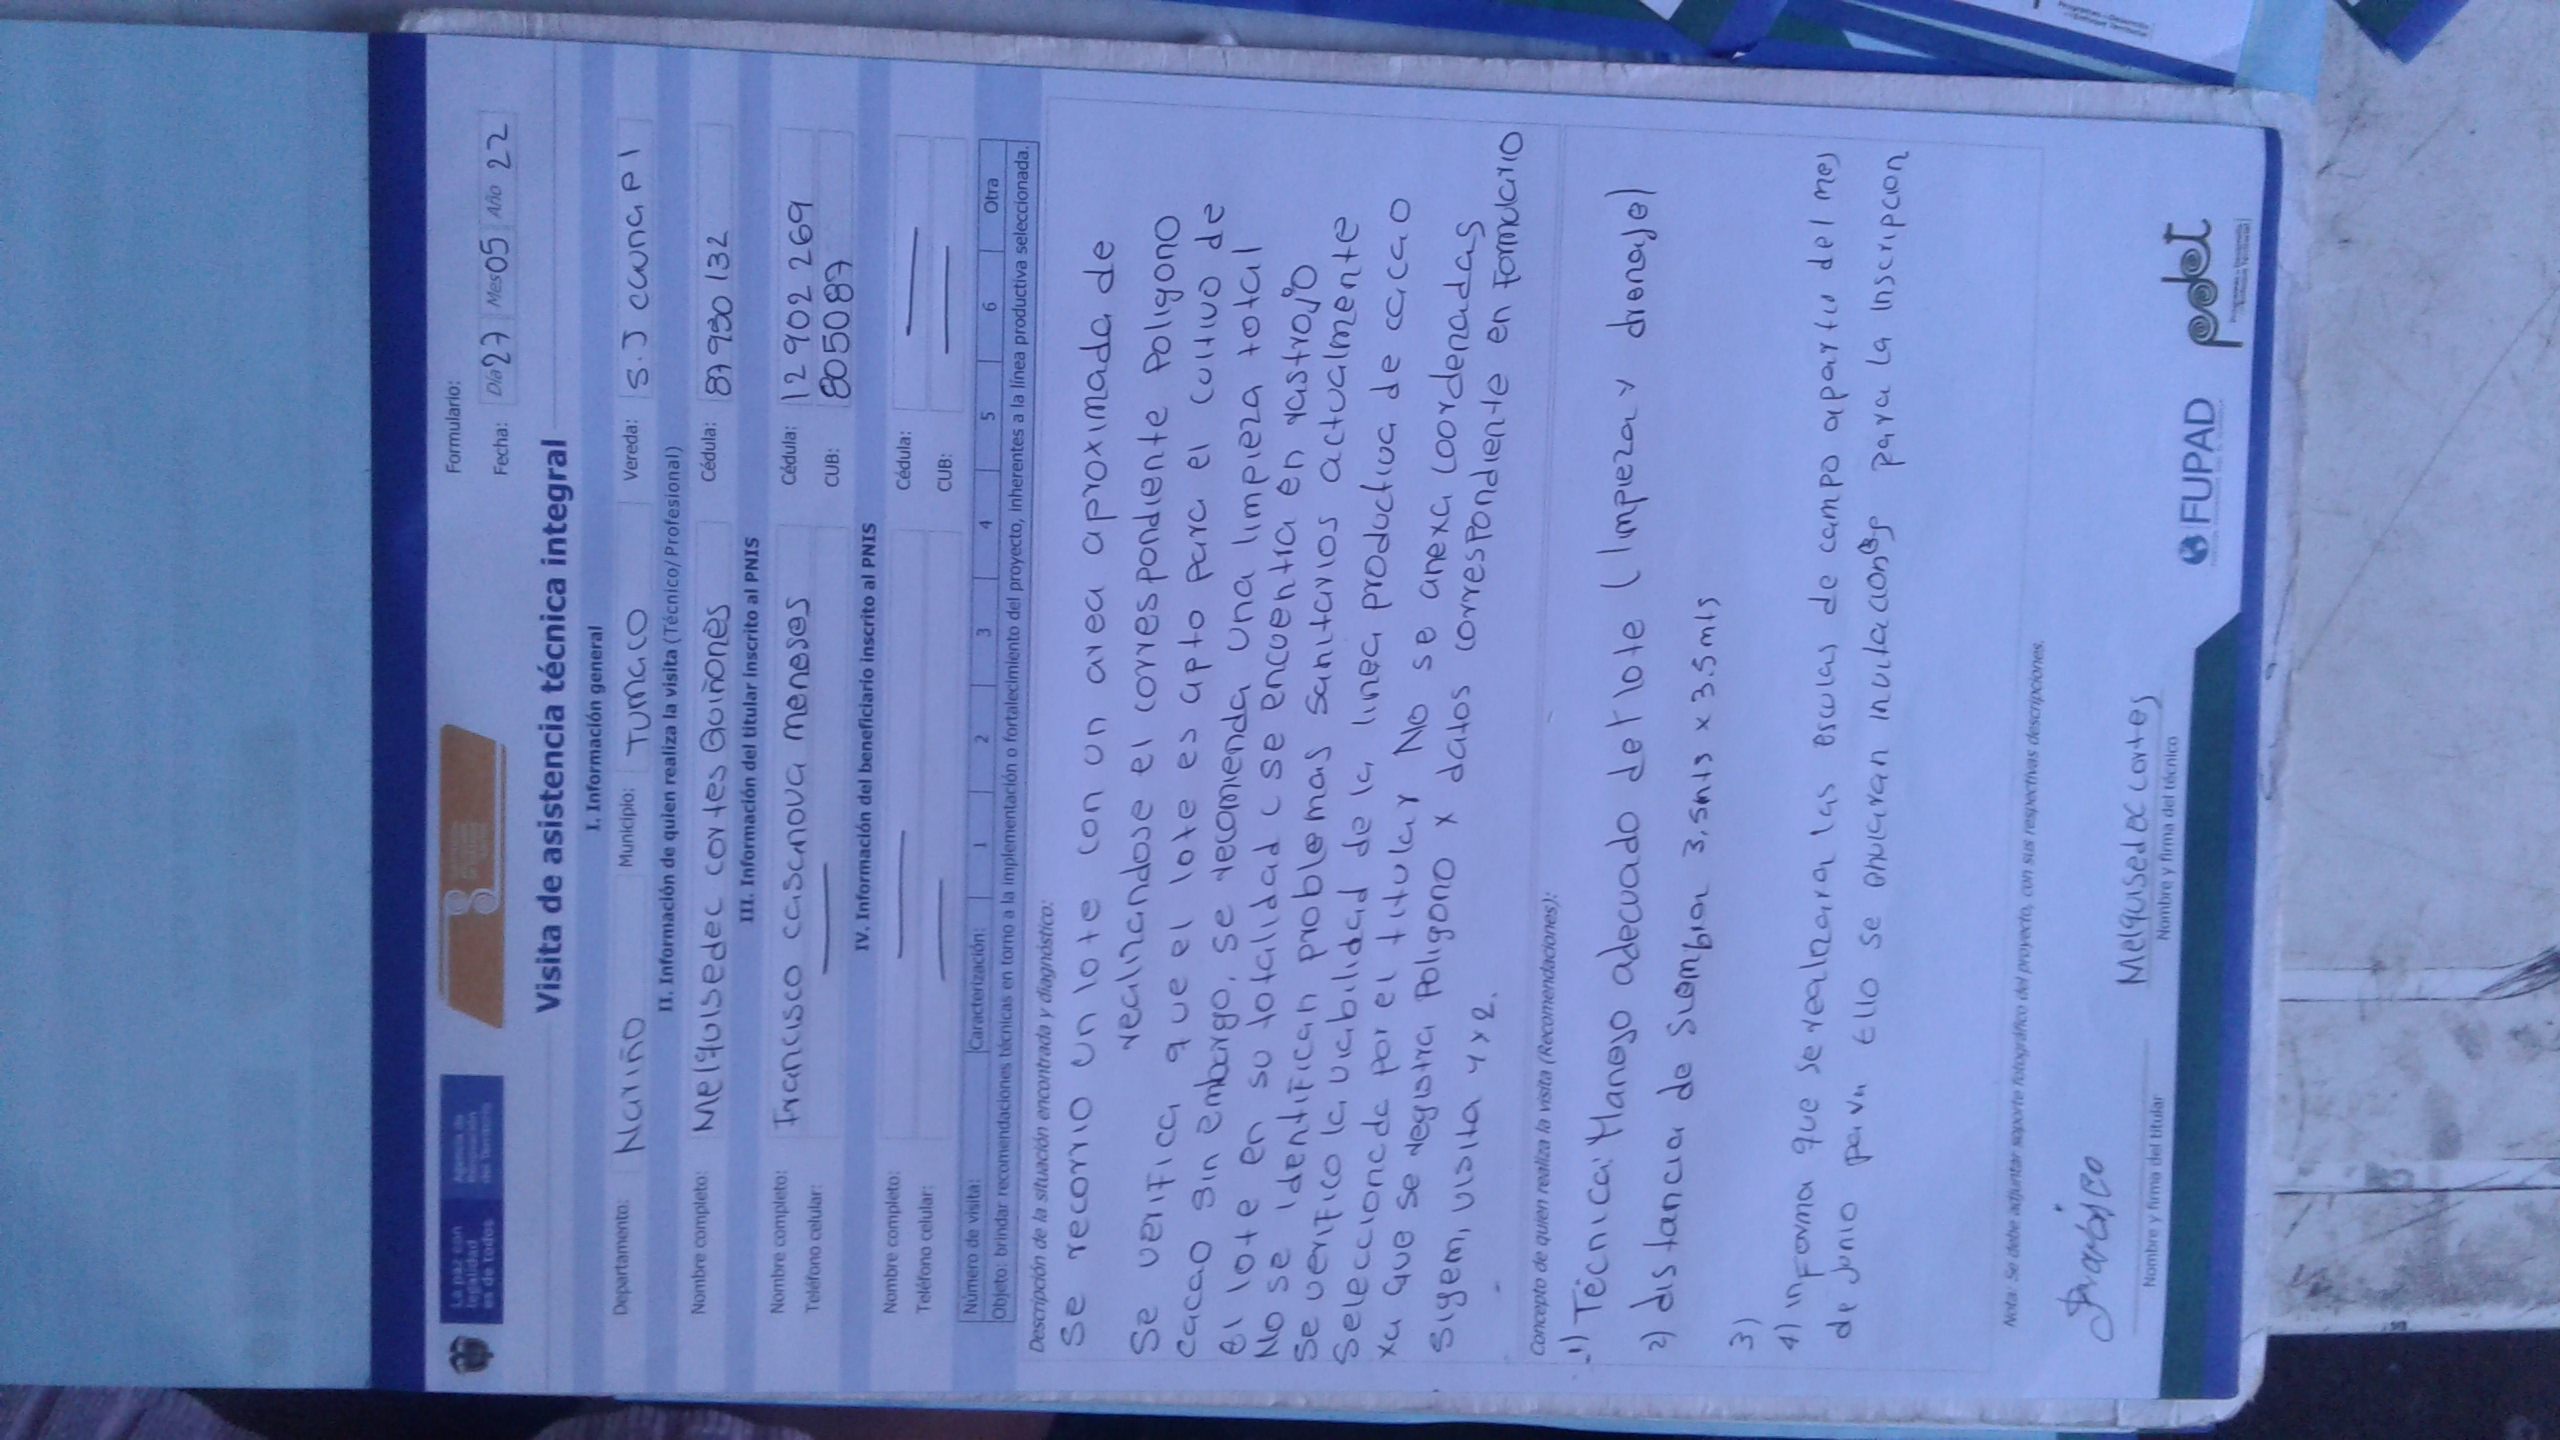 La paz con legalidad es de todos
Agencia de Renovación del Territorio
Formulario:
Fecha: Día 27 Mes 05 Año 22
Visita de asistencia técnica integral
I. Información general
Departamento: Nariño Municipio: Tumaco Vereda: S.J caunapi
II. Información de quien realiza la visita (Técnico/Profesional)
Nombre completo: Melquisedec cortes Quiñones Cédula: 87950132
III. Información del titular inscrito al PNIS
Nombre completo: Francisco casanova meneses Cédula: 12902269
Teléfono celular: — CUB: 805087
IV. Información del beneficiario inscrito al PNIS
Nombre completo: — Cédula: —
Teléfono celular: — CUB: —
Número de visita: Caracterización: 1 2 3 4 5 6 Otra
Objeto: brindar recomendaciones técnicas en torno a la implementación o fortalecimiento del proyecto, inherentes a la línea productiva seleccionada.
Descripción de la situación encontrada y diagnóstico:
Se recorrio un lote con un area aproximada de
realizandose el correspondiente Poligono
Se verifica que el lote es apto para el cultivo de
cacao sin embargo, se recomienda una limpieza total
el lote en su totalidad c se encuentra en rastrojo
No se identifican problemas sanitarios actualmente
Se verifico la viabilidad de la linea productiva de cacao
Seleccionada por el titular No se anexa coordenadas
xa que se registra Poligono x datos correspondiente en Formulario
Sigem, visita 4 x 2.
Concepto de quien realiza la visita (Recomendaciones):
1) Tecnica: Manejo adecuado del lote (limpieza y drenaje)
2) distancia de Siembra 3.5mts x 3.5mts
3)
4) inForma que se realizara las esculas de campo apartir del mes
de Junio para Ello se enviaran invitaciones para la inscripcion
Nota: Se debe adjuntar soporte fotográfico del proyecto, con sus respectivas descripciones.
Melquisedec cortes
Nombre y firma del titular Nombre y firma del técnico
FUPAD pdet